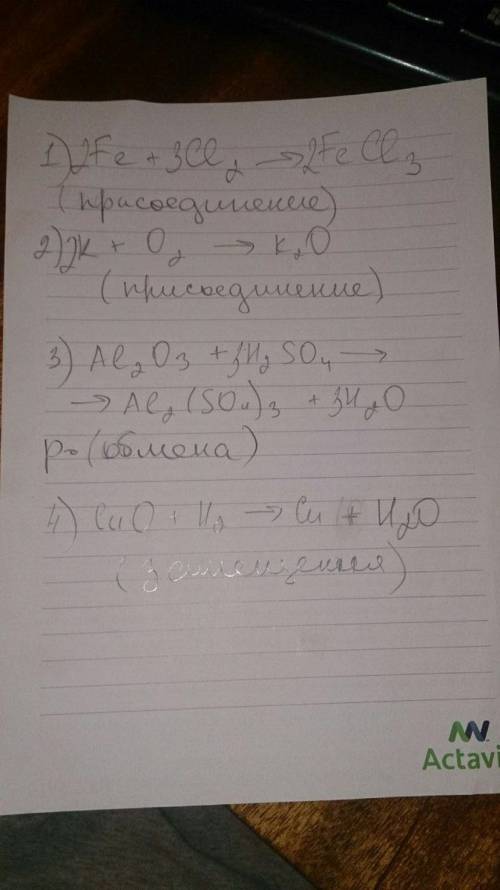 1) 2Fe + 3Cl₂ → 2FeCl₃
(присоединение)
2) 2K + O₂ → K₂O
(присоединение)
3) Al₂O₃ + 3H₂SO₄ →
→ Al₂(SO₄)₃ + 3H₂O
р. (обмена)
4) CuO + H₂ → Cu + H₂O
(замещения)
Actavi